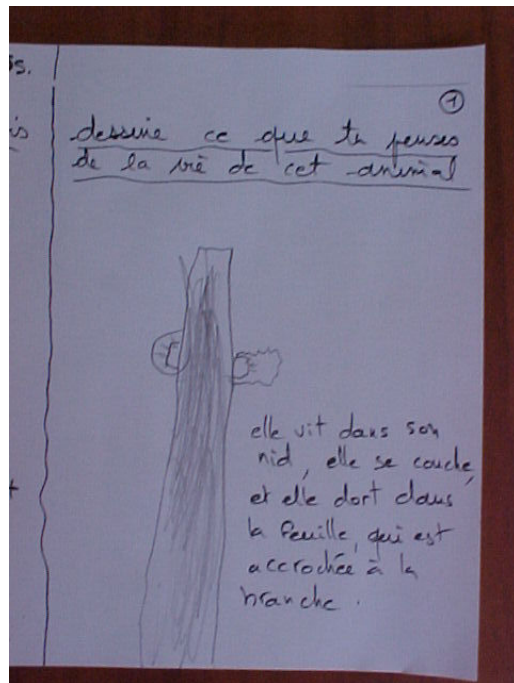 is.
is
①
dessine ce que tu penses
de la vie de cet animal
elle vit dans son
nid, elle se couche,
et elle dort dans
la feuille, qui est
accrochée à la
branche.
t